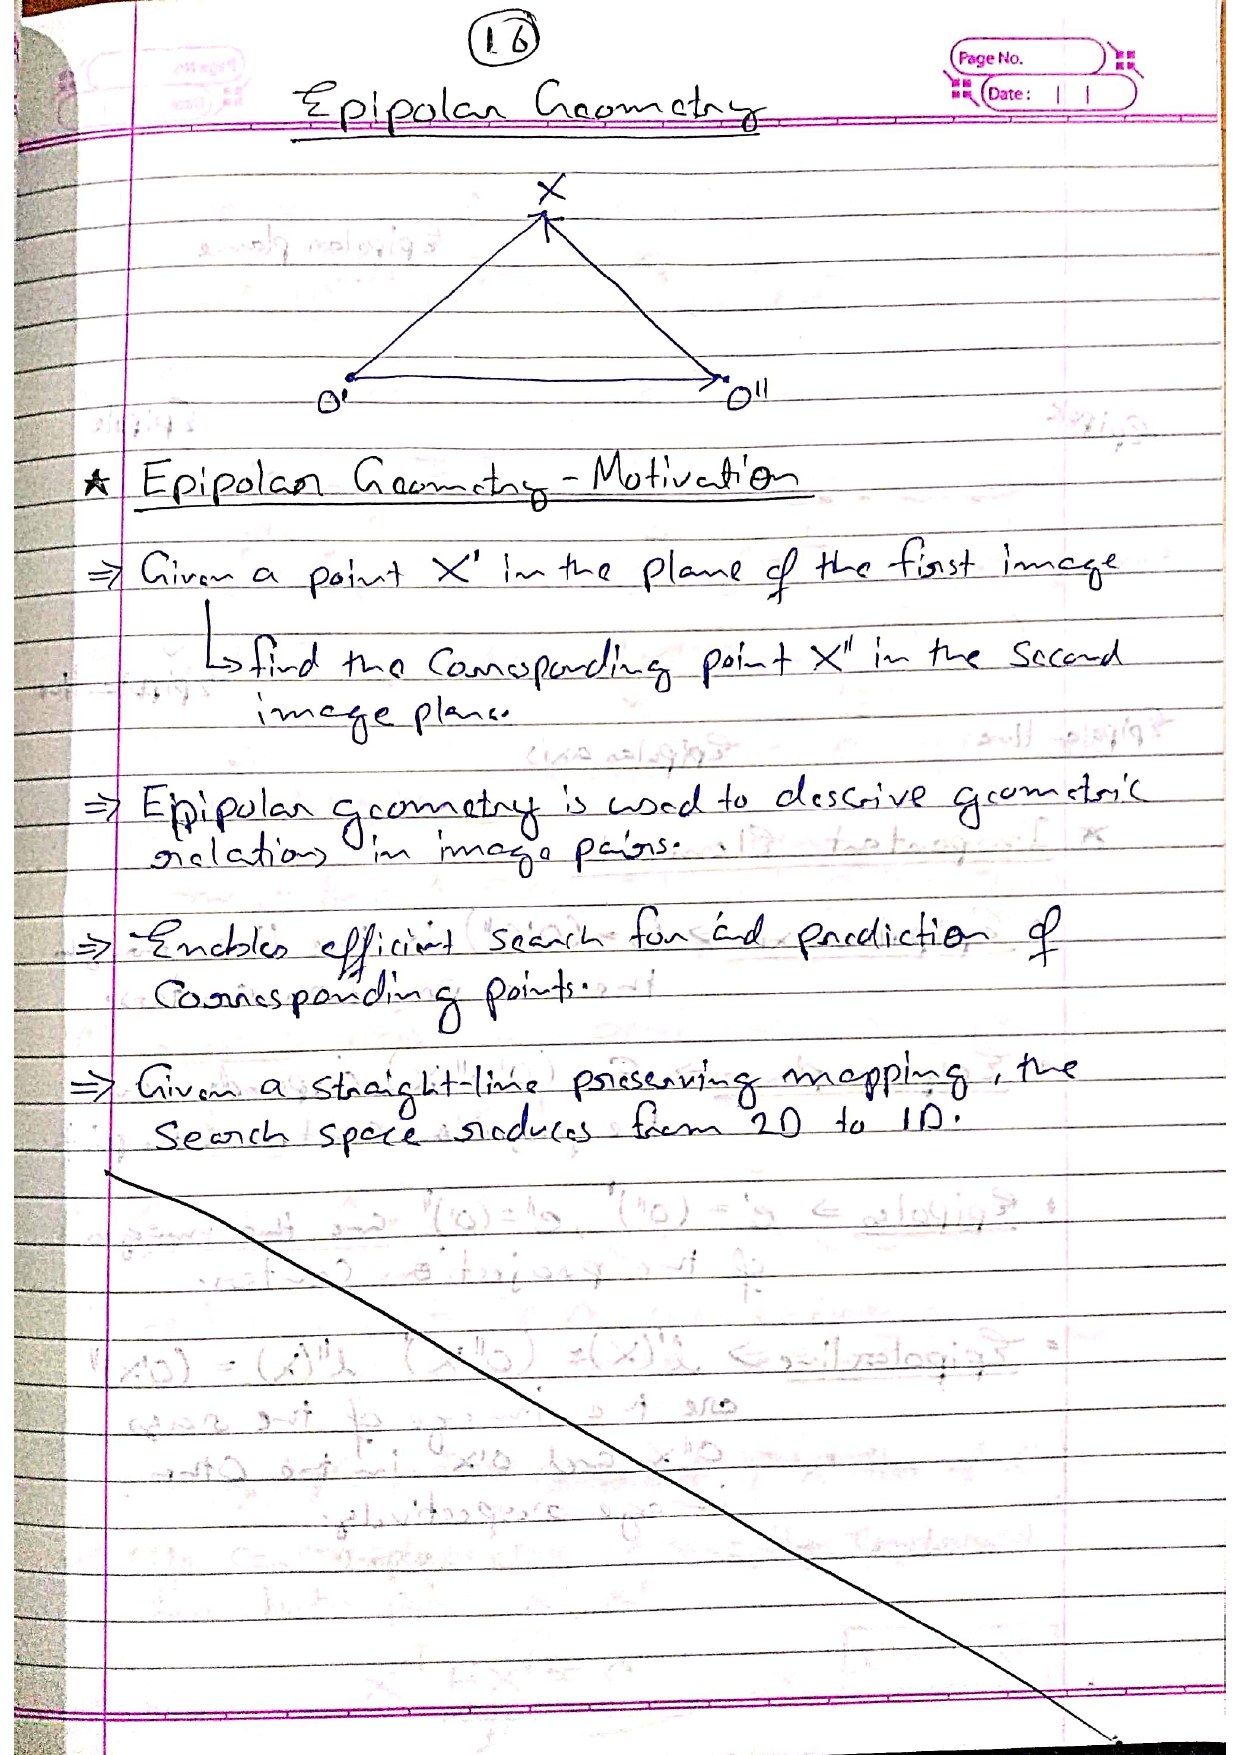 16
Page No.
Date:
Epipolar Geometry
X
O'
O''
★ Epipolar Geometry - Motivation
⇒ Given a point X' in the plane of the first image
↳ find the corresponding point X'' in the second
image plane.
⇒ Epipolar geometry is used to descrive geometric
relations in image pairs.
⇒ Enables efficient search for and prediction of
Corresponding points.
⇒ Given a straight-line preserving mapping, the
Search space reduces from 2D to 1D.